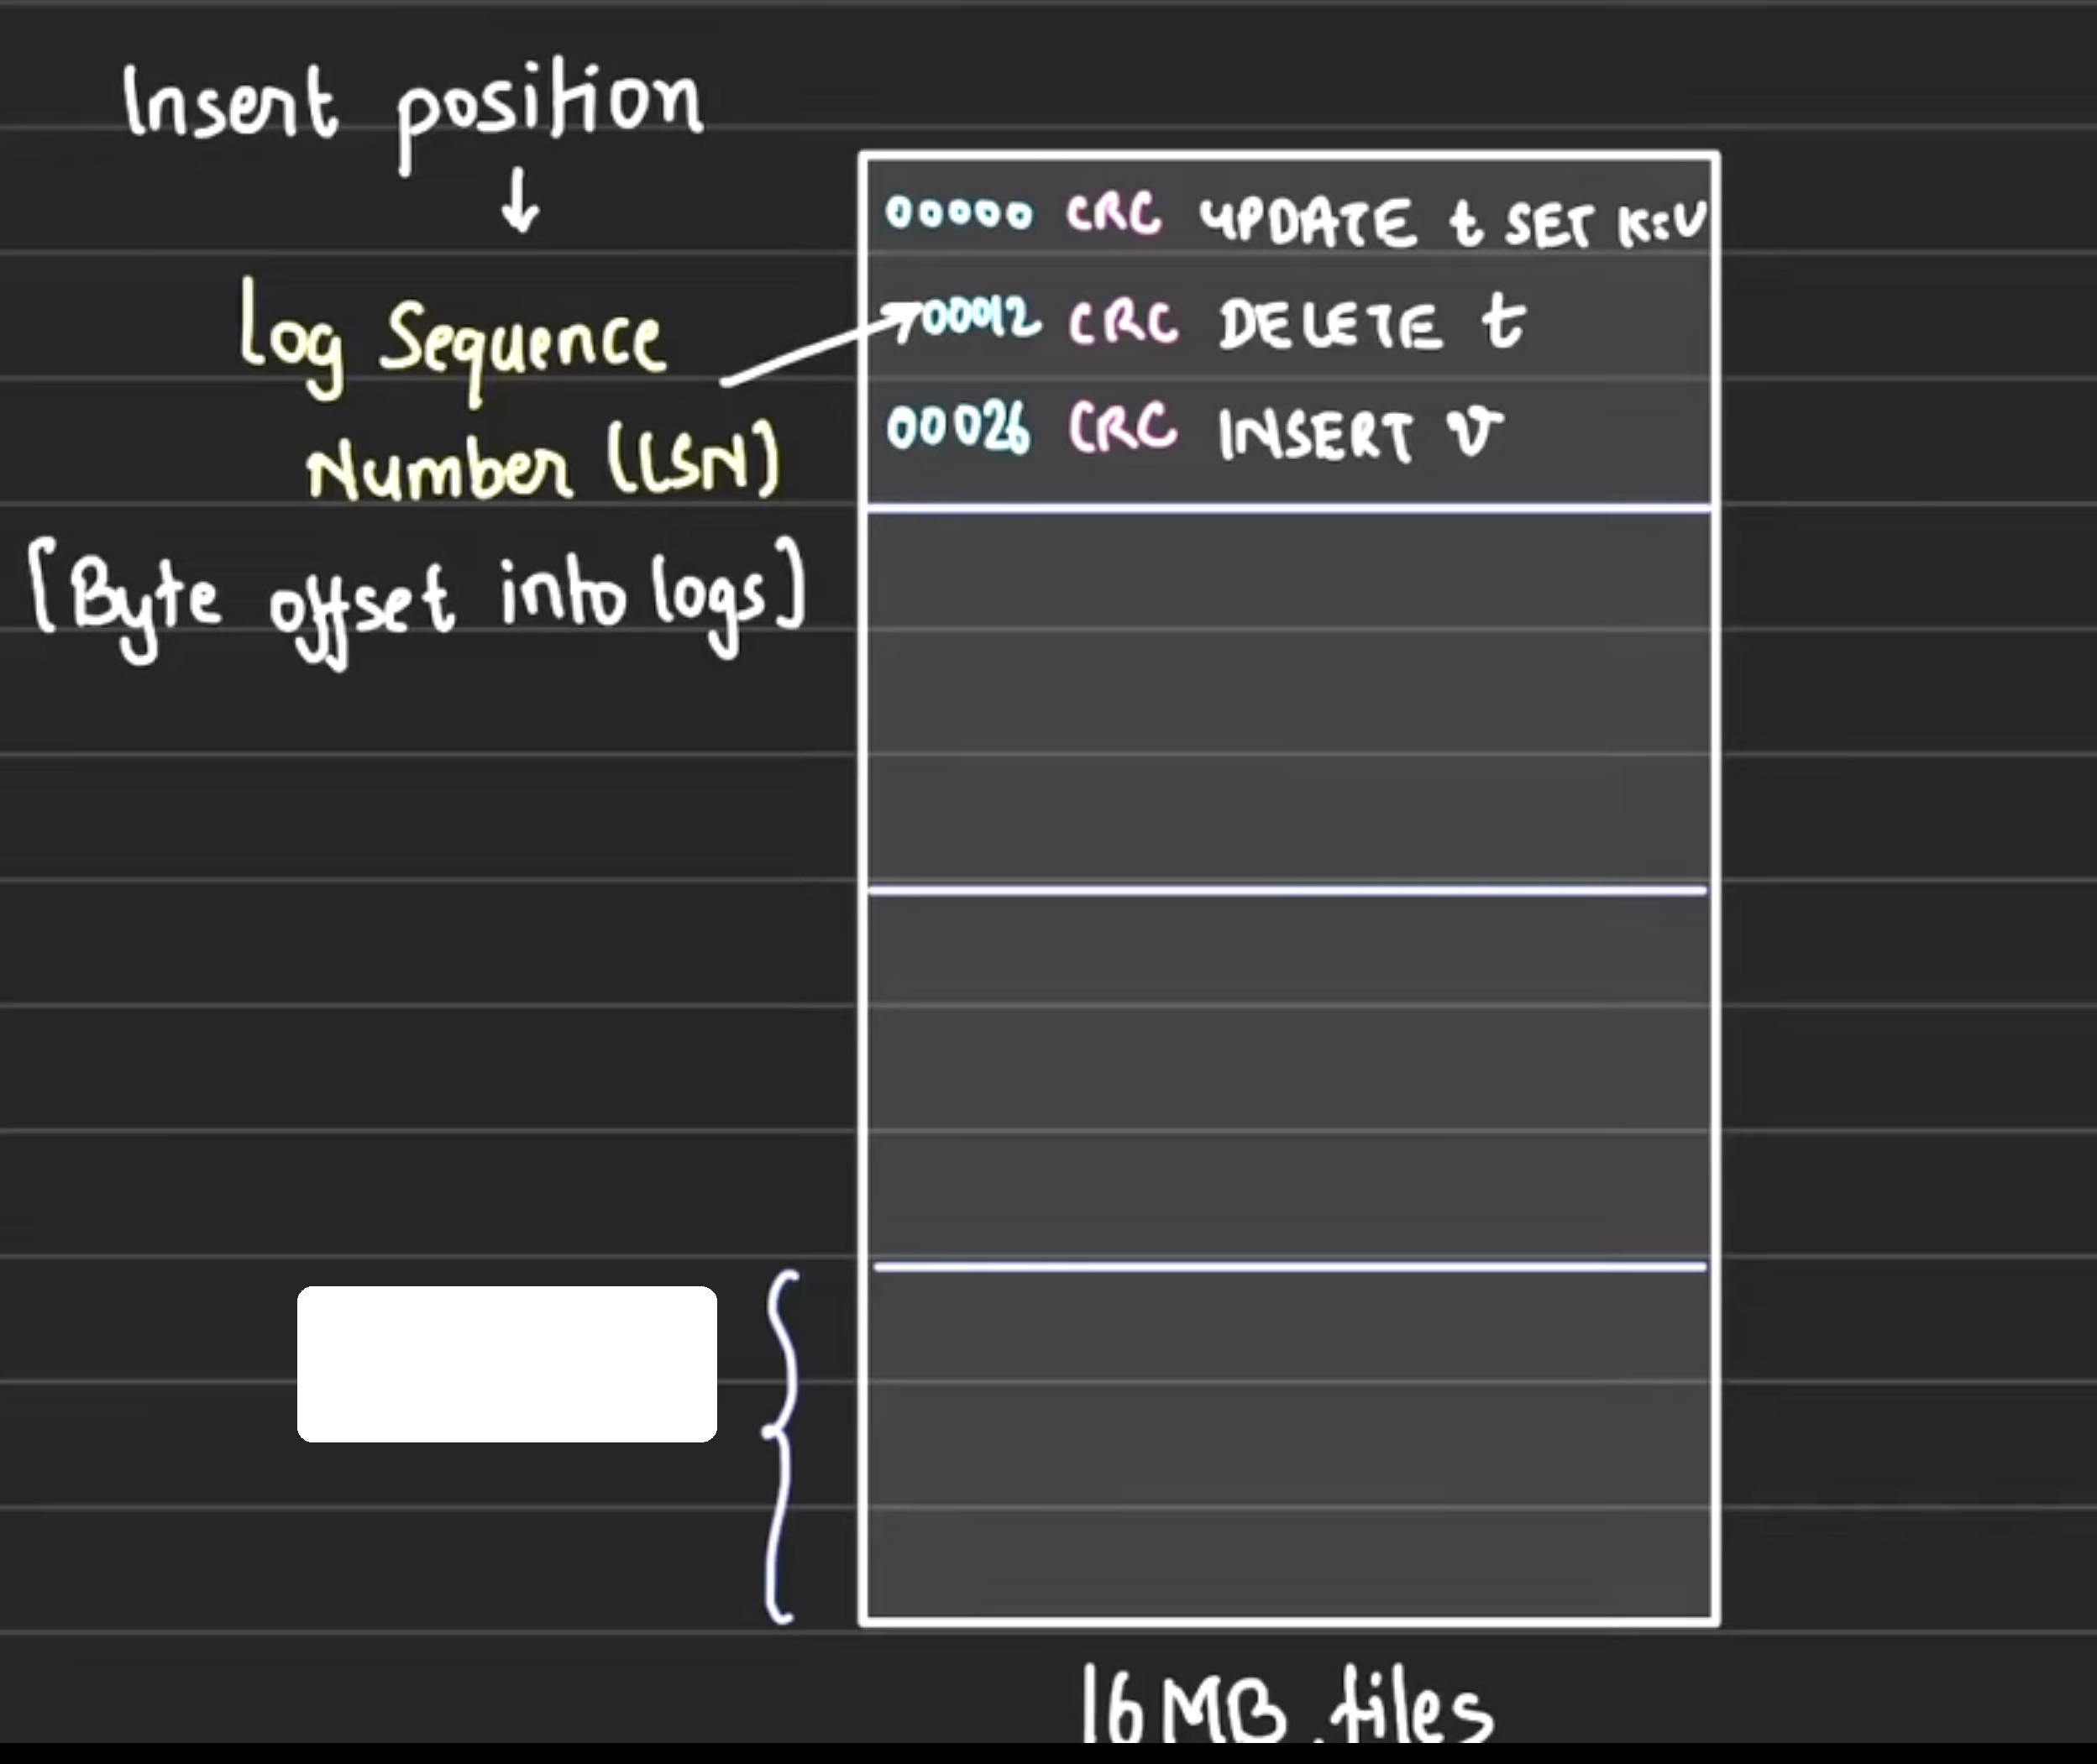 Insert position
↓
Log Sequence
Number (LSN)
[Byte offset into logs]
00000 CRC UPDATE t SET K=V
00012 CRC DELETE t
00026 CRC INSERT v
16 MB files